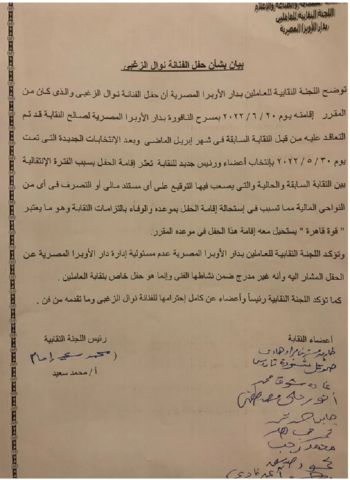 اللجنة النقابية للعاملين
بدار الأوبرا المصرية
بيان بشأن حفل الفنانة نوال الزغبي
توضح اللجنة النقابية للعاملين بدار الأوبرا المصرية أن حفل الفنانة نوال الزغبي والذي كان من
المقرر إقامته يوم ٢٠٢٢/٦/٢٠ بمسرح النافورة بدار الأوبرا المصرية لصالح النقابة قد تم
التعاقد عليه من قبل النقابة السابقة في شهر إبريل الماضي وبعد الإنتخابات الجديدة التي تمت
يوم ٢٠٢٢/٥/٣٠ بإنتخاب أعضاء ورئيس جديد للنقابة تعثر إقامة الحفل بسبب الفترة الإنتقالية
بين النقابة السابقة والحالية والتي يصعب فيها التوقيع على أي مستند مالي أو التصرف في أي من
النواحي المالية مما تسبب في إستحالة إقامة الحفل بموعده والوفاء بالتزامات النقابة وهو ما يعتبر
" قوة قاهرة " يستحيل معه إقامة هذا الحفل في موعده المقرر.
وتؤكد اللجنة النقابية للعاملين بدار الأوبرا المصرية عدم مسئولية إدارة دار الأوبرا المصرية عن
الحفل المشار اليه وأنه غير مدرج ضمن نشاطها الفني وإنما هو حفل خاص بنقابة العاملين .
كما تؤكد اللجنة النقابية رئيساً وأعضاء عن كامل إحترامها للفنانة نوال الزغبي وما تقدمه من فن .
أعضاء النقابة
رئيس اللجنة النقابية
محمد سعيد إمام
أ/ محمد سعيد
محمد رجب